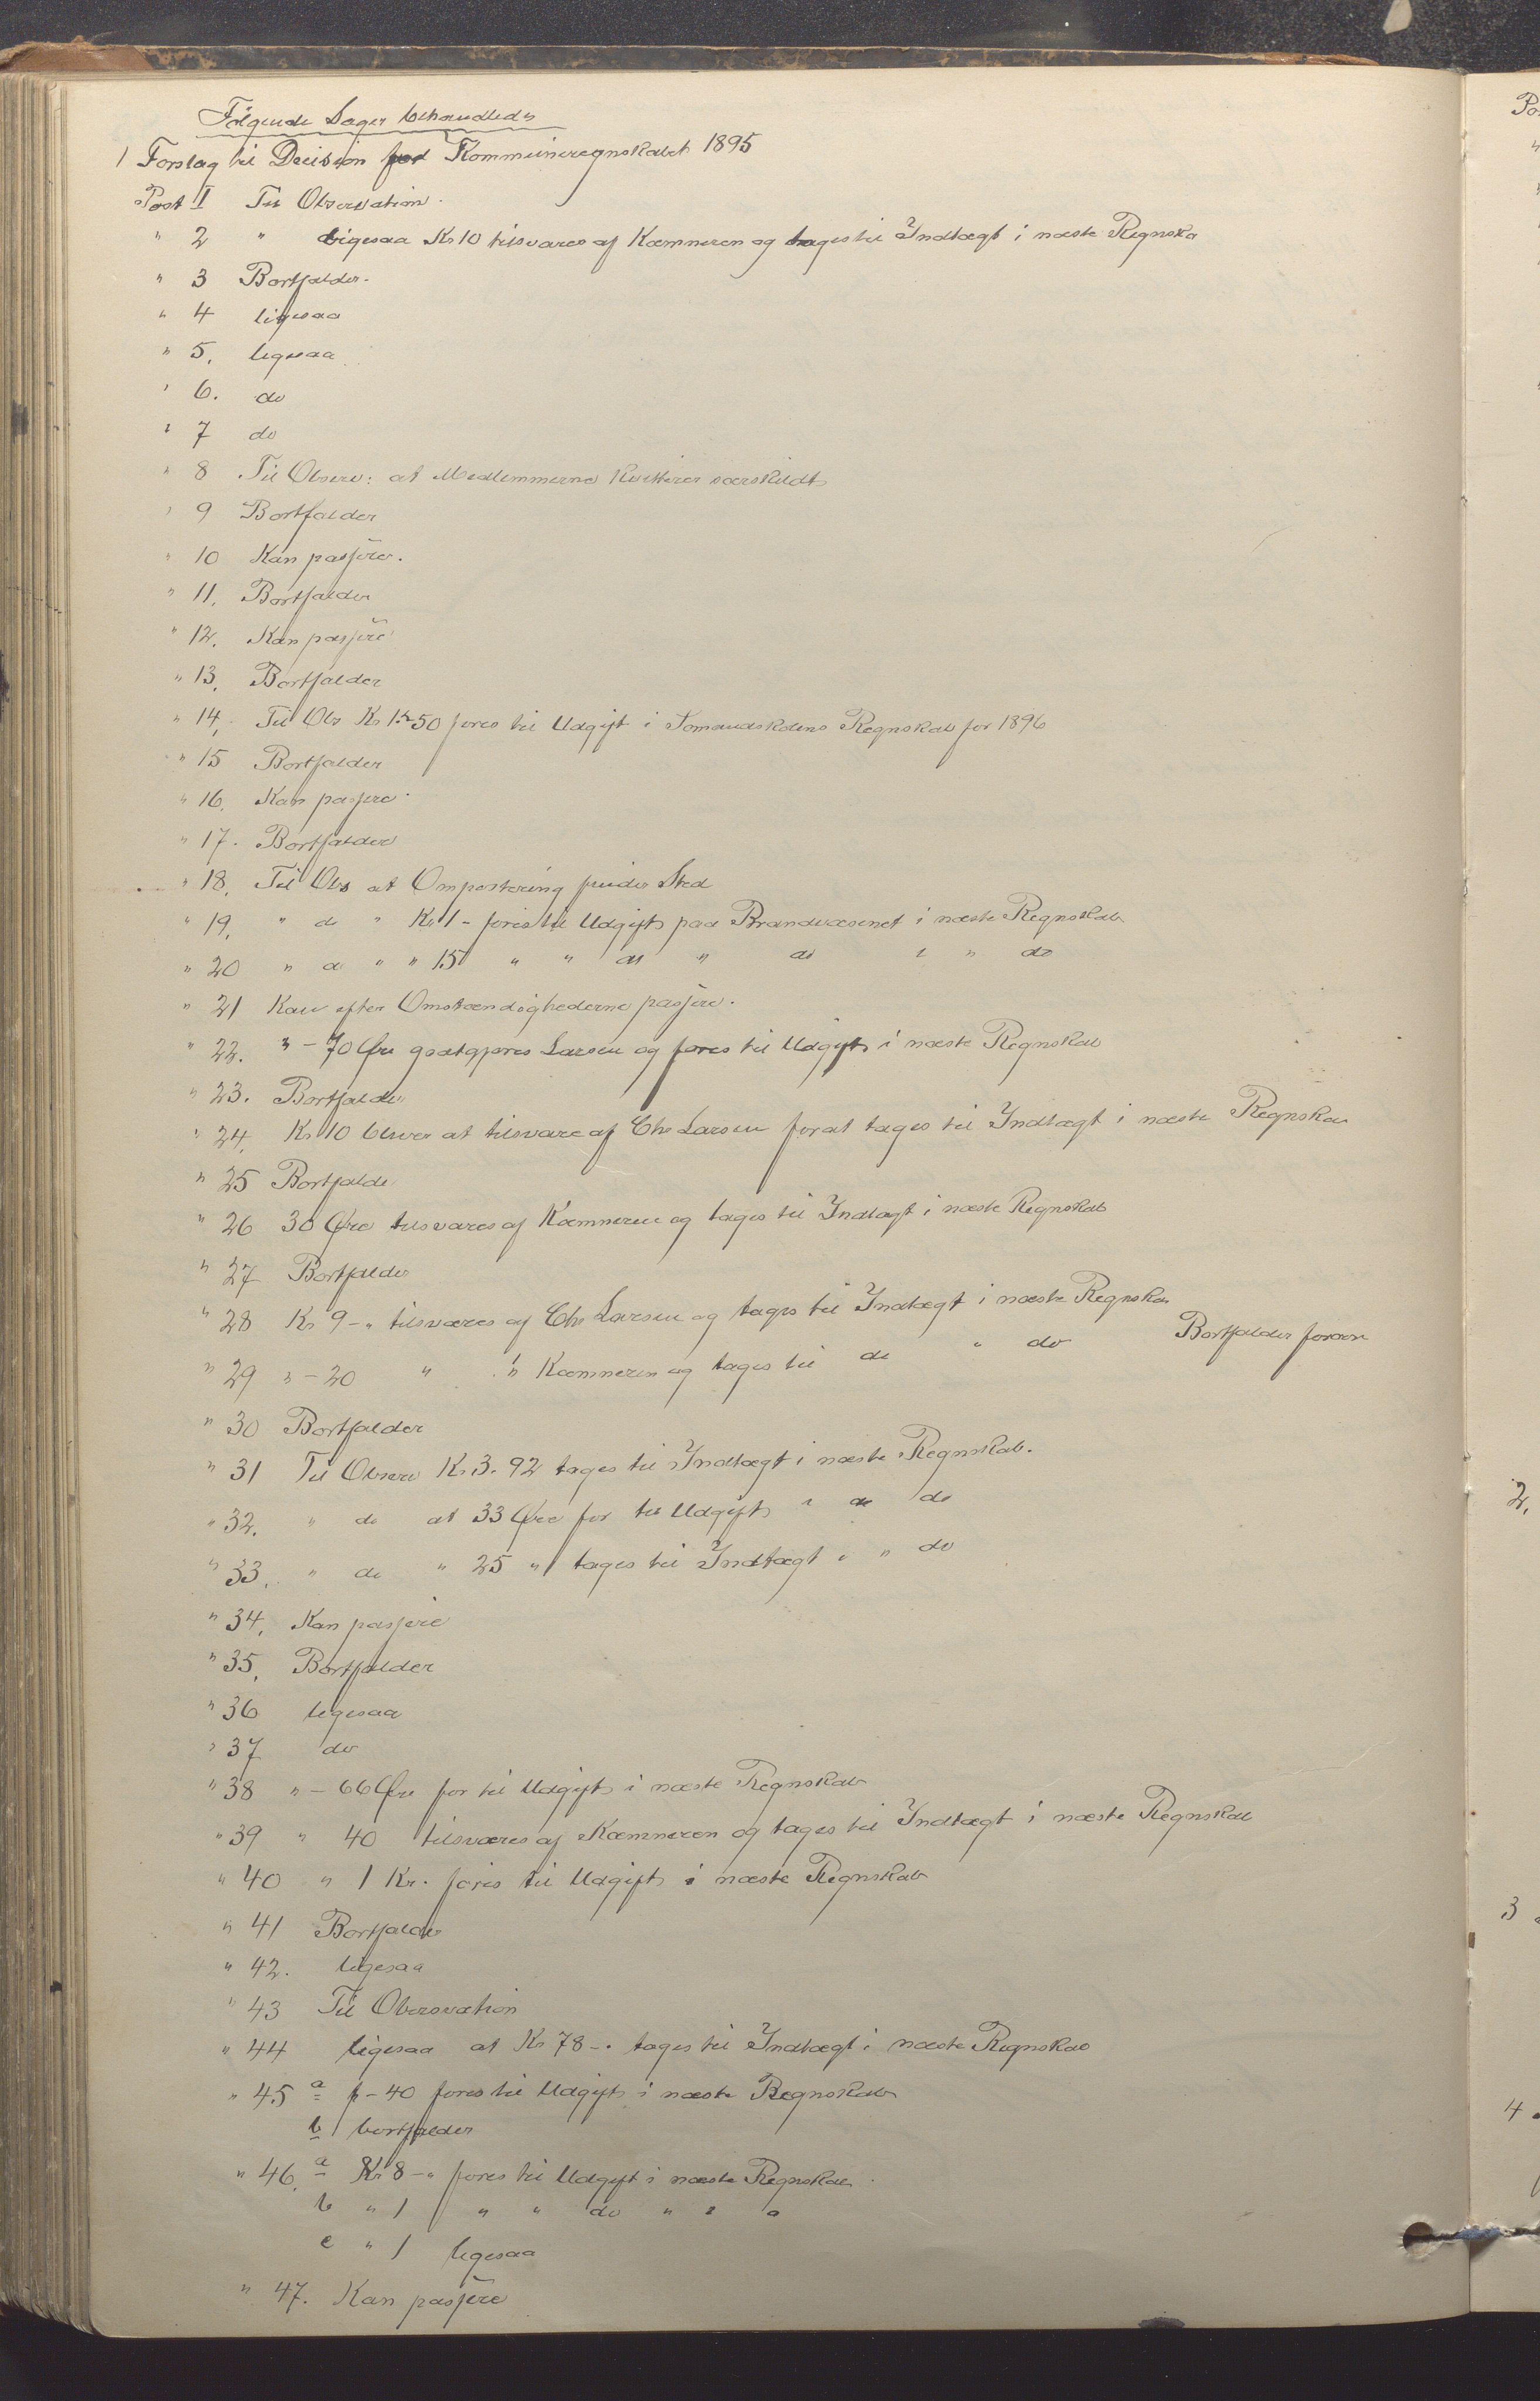 Følgende Sager behandledes
1 Forslag til Decision for Kommuneregnskabet 1895
Post I Til Observation.
" 2 " Ligesaa Kr 10 tilsvares af Kæmneren og tages til Indtægt i næste Regnska
" 3 Bortfalder.
" 4 ligesaa
" 5. ligesaa
" 6. do
" 7 do
" 8 Til Observ: at Medlemmerne kvitterer særskildt
" 9 Bortfalder
" 10 Kan passere.
" 11. Bortfalder
" 12. Kan passere
" 13. Bortfalder
" 14. Til Obs Kr 50 føres til Udgift i Regnskab for 1896
" 15 Bortfalder
" 16. Kan passere.
" 17. Bortfalder
" 18. Til Obs at Ompostering finder Sted
" 19. " do " Kr 1 - føres til Udgift paa Brandvæsenet i næste Regnskab
" 20 " do " " 15 " " do " do i " do
" 21 Kan efter Omstændighederne passere.
" 22. " - 70 Øre godtgjøres Larsen og føres til Udgift i næste Regnskab
" 23. Bortfalder
" 24. Kr 10 bliver at tilsvare af Chr Larsen for at tages til Indtægt i næste Regnskab
" 25 Bortfalder
" 26 30 Øre tilsvares af Kæmneren og tages til Indtægt i næste Regnskab
" 27 Bortfalder
" 28 Kr 9 - " tilsvares af Chr Larsen og tages til Indtægt i næste Regnskab
" 29 " - 20 " " Kæmneren og tages til do " do Bortfalder
" 30 Bortfalder
" 31 Til Observ Kr 3. 92 tages til Indtægt i næste Regnskab.
" 32. " do at 33 Øre før til Udgift i do do
" 33. " do " 25 " tages til Indtægt i " do
" 34. Kan passere
" 35. Bortfalder
" 36 ligesaa
" 37 do
" 38 " - 66 Øre før til Udgift i næste Regnskab
" 39 " 40 tilsvares af Kæmneren og tages til Indtægt i næste Regnskab
" 40 " 1 Kr. føres til Udgift i næste Regnskab
" 41 Bortfalder
" 42. ligesaa
" 43 Til Observation
" 44 ligesaa at Kr 78 - . tages til Indtægt i næste Regnskab
" 45 a - 40 føres til Udgift i næste Regnskab
b bortfalder
" 46. a Kr 8 - " føres til Udgift i næste Regnskab
b " 1 " " do " " "
c " 1 ligesaa
" 47. Kan passere
2.
3
4.